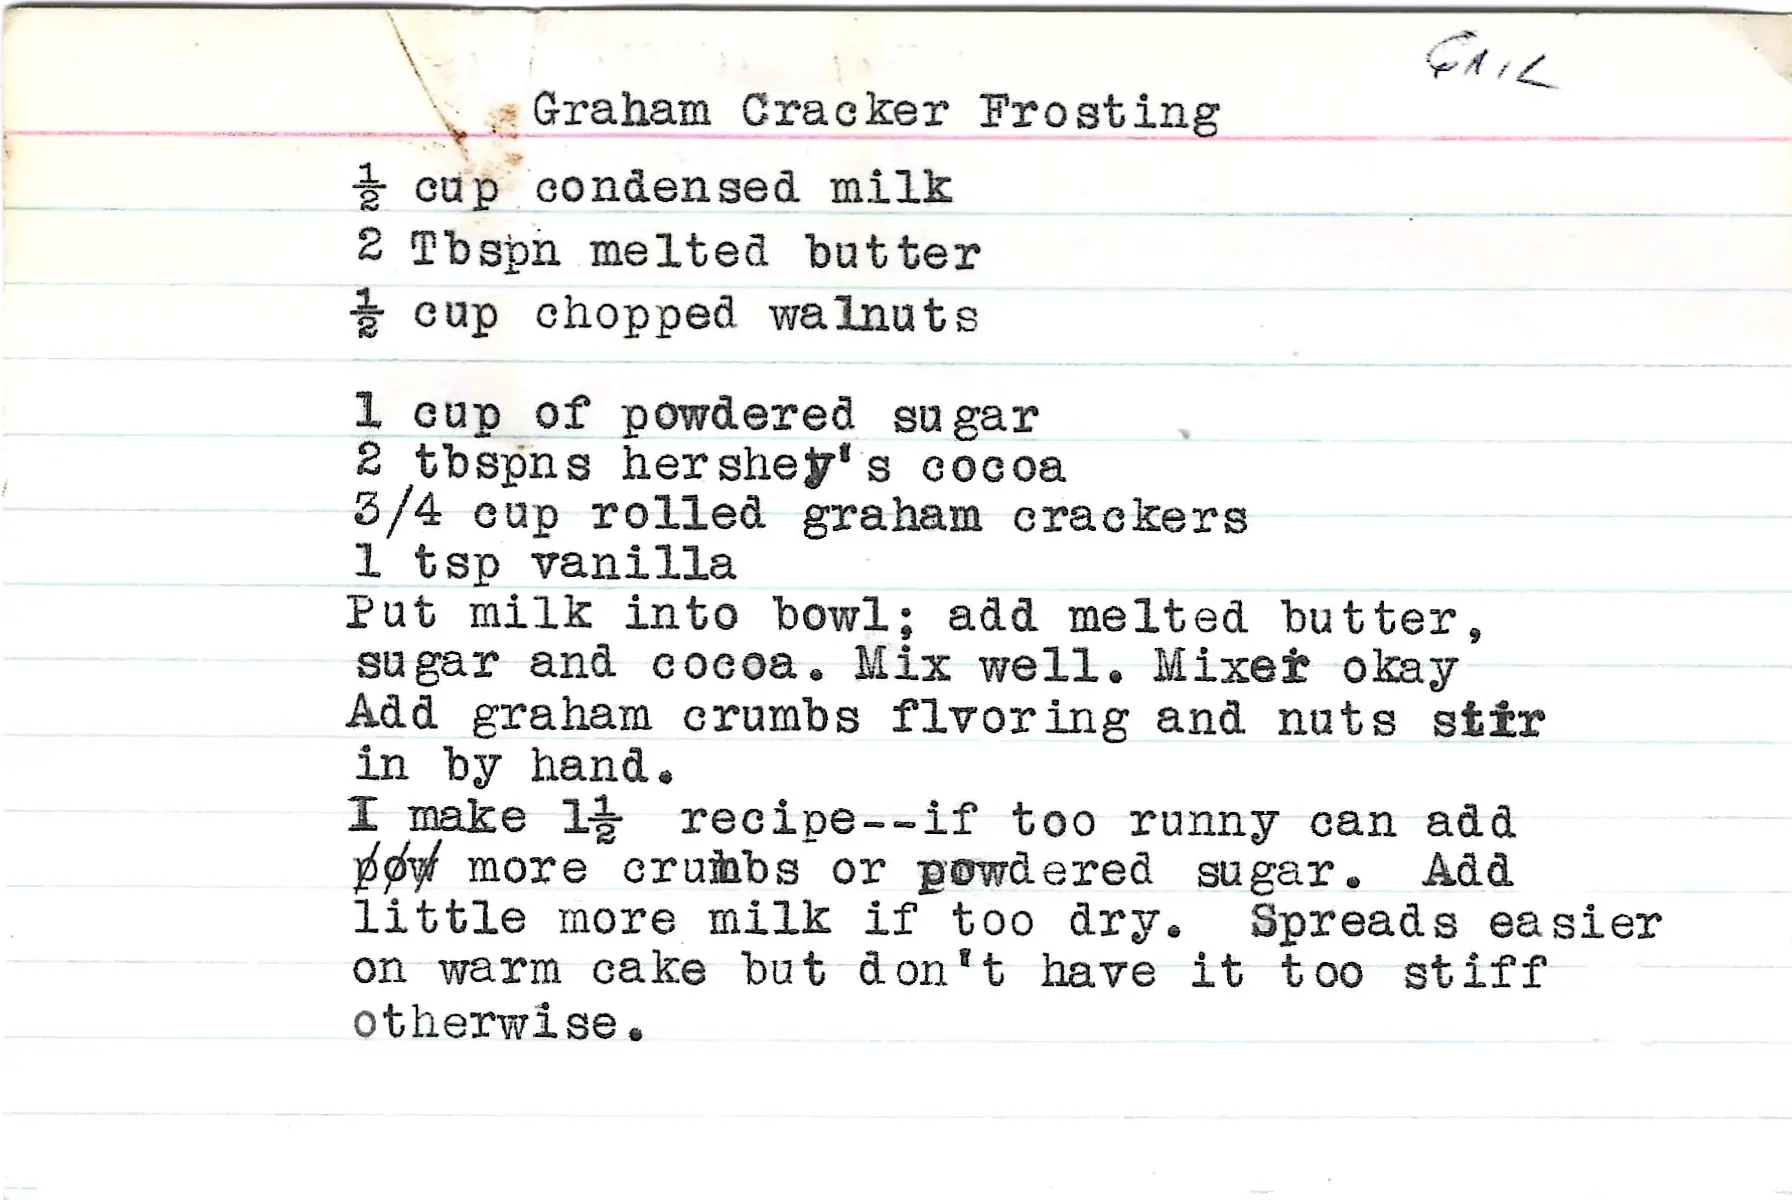 GAIL
Graham Cracker Frosting
½ cup condensed milk
2 Tbspn melted butter
½ cup chopped walnuts
1 cup of powdered sugar
2 tbspns hershey's cocoa
3/4 cup rolled graham crackers
1 tsp vanilla
Put milk into bowl; add melted butter,
sugar and cocoa. Mix well. Mixer okay
Add graham crumbs flvoring and nuts stir
in by hand.
I make 1½ recipe--if too runny can add
more crumbs or powdered sugar. Add
little more milk if too dry. Spreads easier
on warm cake but don't have it too stiff
otherwise.